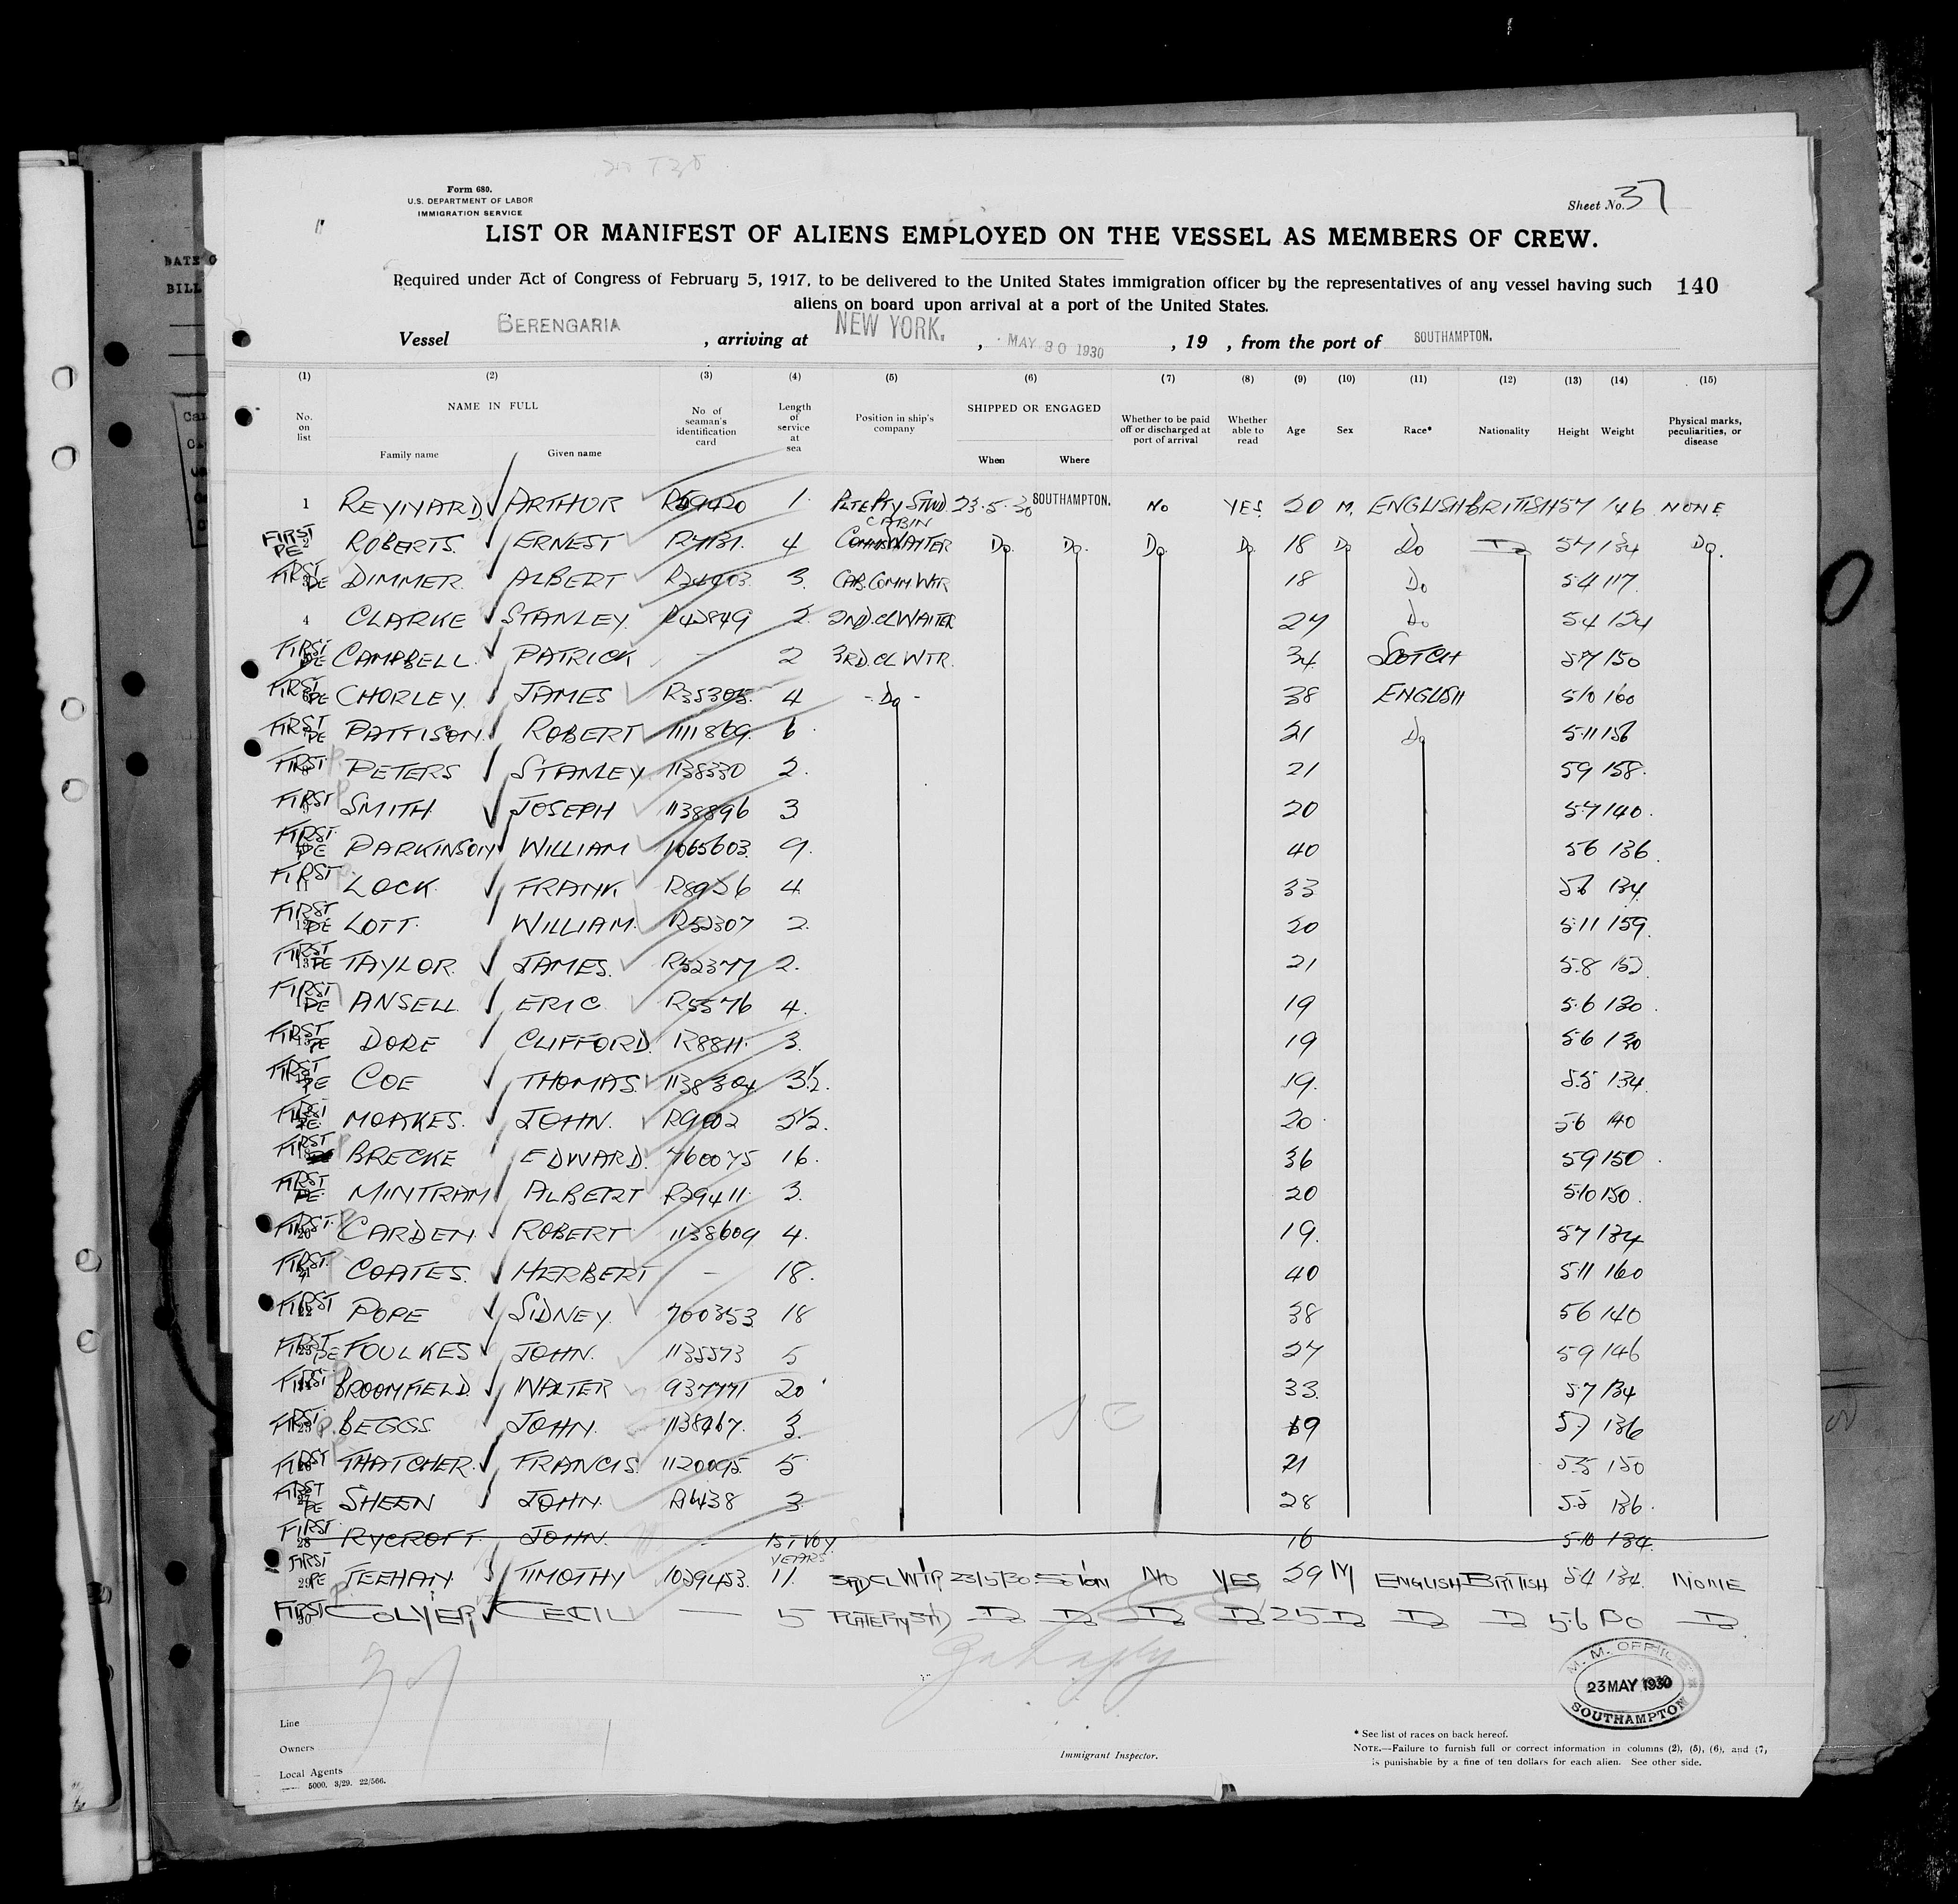 DATE O
BILL
Form 680.
U.S. DEPARTMENT OF LABOR
IMMIGRATION SERVICE
Sheet No. 37
LIST OR MANIFEST OF ALIENS EMPLOYED ON THE VESSEL AS MEMBERS OF CREW.
Required under Act of Congress of February 5, 1917, to be delivered to the United States immigration officer by the representatives of any vessel having such
140
aliens on board upon arrival at a port of the United States.
Vessel BERENGARIA , arriving at NEW YORK. , MAY 30 1930 , 19 , from the port of SOUTHAMPTON.
(1) (2) (3) (4) (5) (6) (7) (8) (9) (10) (11) (12) (13) (14) (15)
No. on list NAME IN FULL Family name Given name No. of seaman's identification card Length of service at sea Position in ship's company SHIPPED OR ENGAGED When Where Whether to be paid off or discharged at port of arrival Whether able to read Age Sex Race* Nationality Height Weight Physical marks, peculiarities, or disease
1 REYNARD ARTHUR 1 PLTE PTY STWD 23.5.30 SOUTHAMPTON. NO YES 20 M. ENGLISH BRITISH 57 146 NONE
FIRST PE 2 ROBERTS. ERNEST 4 CABIN WAITER Do. Do. Do Do 18 Do Do Do 57 134 Do.
FIRST PE DIMMER. ALBERT R24903 3. CAB. COMM WTR 18 Do 5.4 117
4 CLARKE STANLEY. R42849 2 2ND. CL WAITER 27 Do 5.4 124
FIRST PE CAMPBELL. PATRICK - 2 3RD. CL WTR. 34 SCOTCH 5.7 150
FIRST PE CHORLEY. JAMES R35305 4 - Do - 38 ENGLISH 5.10 160
FIRST PE PATTISON. ROBERT 1111869 6 21 Do 5.11 156
FIRST PETERS STANLEY 1138330 2. 21 59 158.
FIRST SMITH JOSEPH 1138896 3 20 5.7 140.
FIRST PE PARKINSON WILLIAM 1065603 9. 40 56 136.
FIRST 11 LOCK FRANK. R8926 4 33 56 134.
FIRST 12 PE LOTT. WILLIAM. R52307 2. 20 5.11 159.
FIRST 13 PE TAYLOR. JAMES. R52377 2. 21 5.8 152
FIRST PE ANSELL. ERIC R5576 4. 19 5.6 130.
FIRST 15 PE DORE CLIFFORD. R8811. 3. 19 5.6 130
FIRST PE COE THOMAS. 1138304 3½. 19. 5.5 134.
FIRST PE. MOAKES. JOHN. R9002 2½. 20 5.6 140
FIRST BRECKE EDWARD. 760075 16. 36 59 150.
FIRST PE. MINTRAM ALBERT R29411. 3. 20 5.10 150.
FIRST. 20 CARDEN. ROBERT 1138609 4. 19. 57 134
FIRST. 21 COATES. HERBERT - 18. 40 5.11 160
FIRST 22 POPE SIDNEY. 700353 18 38 56 140
FIRST 23 PE FOULKES JOHN. 1135573 5 27 59 146
FIRST BROOMFIELD. WALTER 937771 20 33. 5.7 134
FIRST. 25 BEGGS. JOHN. 1138467. 3. 19 5.7 136
FIRST THATCHER. FRANCIS. 1120095 5 21 5.5 150
FIRST PE SHEEN JOHN. 3 28 5.5 136.
FIRST. 28 RYCROFT. JOHN. - 1ST VOY. 16 5.10 134.
FIRST 29 PE JEEHAN TIMOTHY 1029453. YEARS 11. 3RD CL WTR 23/5/30 SO'TON NO YES 29 M ENGLISH BRITISH 5.4 134. NONE
FIRST 30 COLYER CECIL — 5 PLATE PTY STD Do Do Do Do 25 Do Do Do 5.6 Do
37
M. M. OFFICE
23 MAY 1930
SOUTHAMPTON
Line
Owners
Local Agents
5000. 3/29. 22/566.
Immigrant Inspector.
* See list of races on back hereof.
NOTE.—Failure to furnish full or correct information in columns (2), (5), (6), and (7,
is punishable by a fine of ten dollars for each alien. See other side.